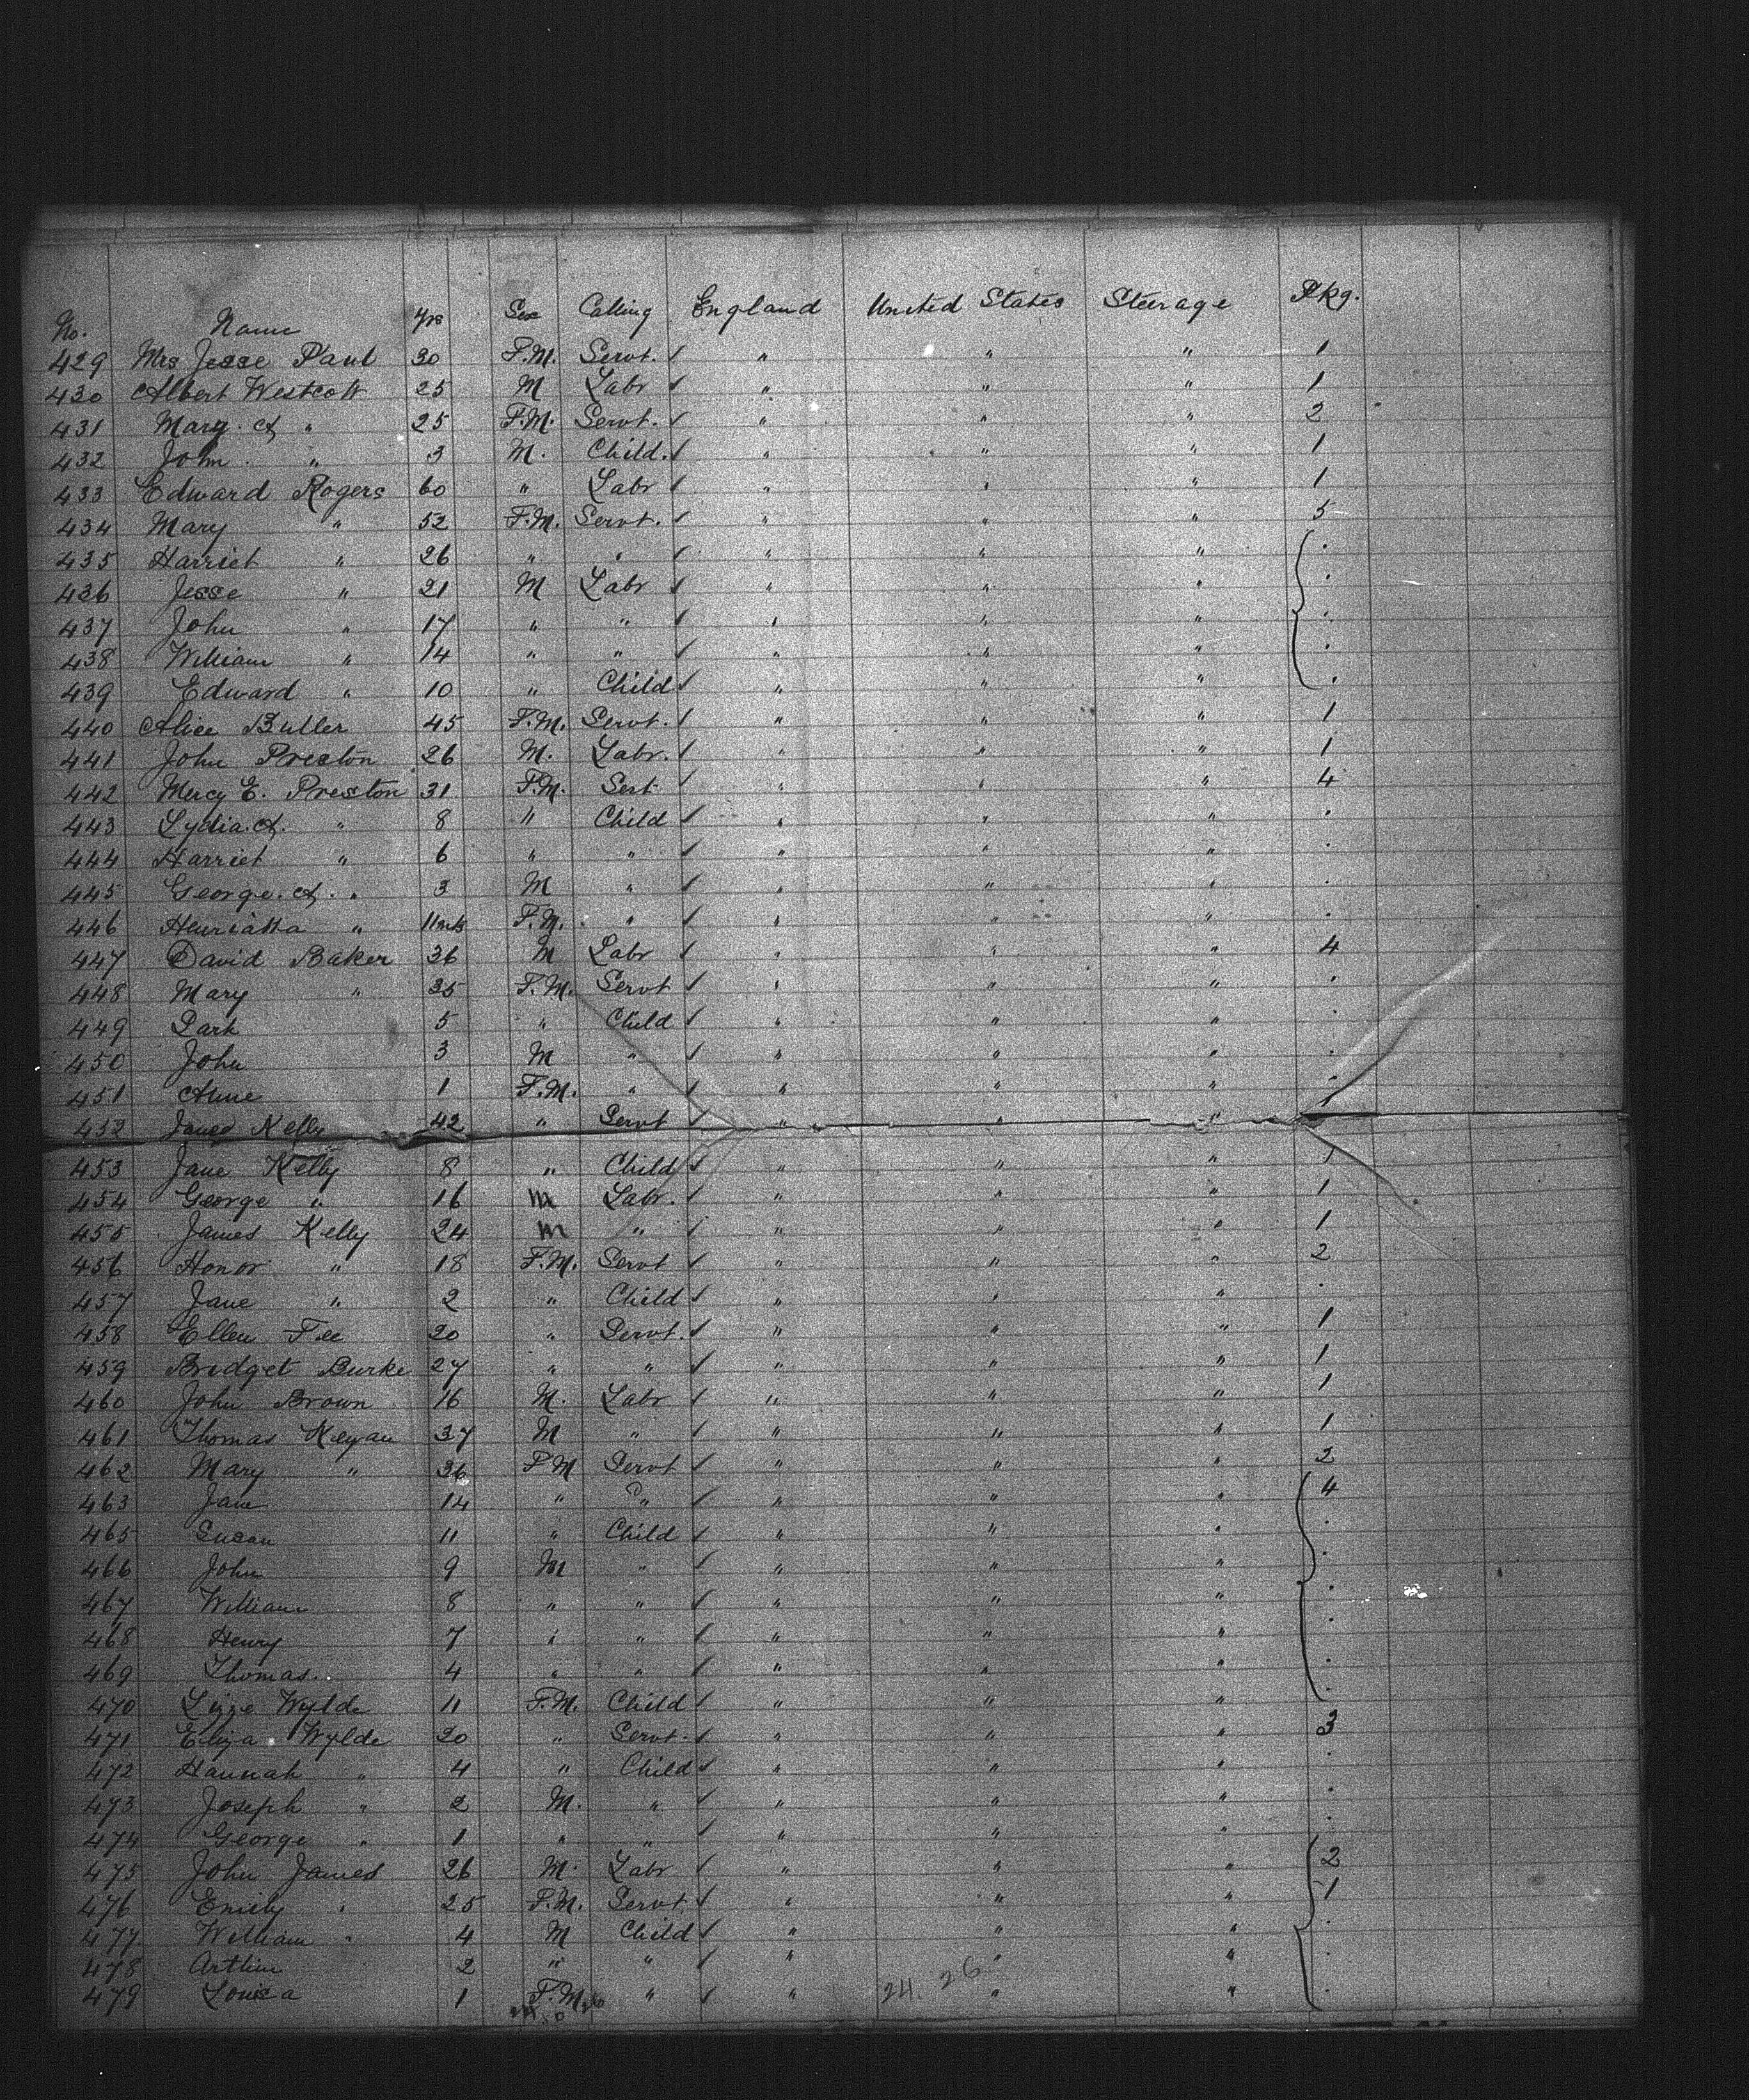 No. Name Yrs Sex Calling England United States Steerage Pkg.
429 Mrs Jesse Paul 30 F.M. Servt. ✓ " " " 1
430 Albert Westcott 25 M Labr ✓ " " " 1
431 Mary. A " 25 F.M. Servt. ✓ " " " 2
432 John " 3 M. Child. ✓ " " " 1
433 Edward Rogers 60 " Labr ✓ " " " 1
434 Mary " 52 F.M. Servt. ✓ " " " 5
435 Harriet " 26 " " ✓ " " " .
436 Jesse " 21 M Labr ✓ " " " .
437 John " 17 " " ✓ " " " .
438 William " 14 " " ✓ " " " .
439 Edward " 10 " Child ✓ " " " .
440 Alice Butler 45 F.M. Servt. ✓ " " " 1
441 John Preston 26 M. Labr. ✓ " " " 1
442 Mercy E. Preston 31 F.M. Sert ✓ " " " 4
443 Lydia. A. " 8 " Child ✓ " " " .
444 Harriet " 6 " " ✓ " " " .
445 George. A. " 3 M " ✓ " " " .
446 Henriatta " 11 mts F.M. " ✓ " " " .
447 David Baker 36 M Labr ✓ " " " 4
448 Mary " 35 F.M. Servt ✓ " " " .
449 5 " Child ✓ " " " .
450 John 3 M " ✓ " " " .
451 Anne 1 F.M. " ✓ " " " .
452 Kelly 42 " Servt ✓ " " "
453 Jane Kelly 8 " Child ✓ " " " 1
454 George " 16 M Labr. ✓ " " " 1
455 James Kelly 24 M " ✓ " " " 1
456 Honor " 18 F.M. Servt ✓ " " " 2
457 Jane " 2 " Child ✓ " " " .
458 Ellen Fee 20 " Servt. ✓ " " " 1
459 Bridget Burke 27 " " ✓ " " " 1
460 John Brown 16 M. Labr ✓ " " " 1
461 Thomas 37 M " ✓ " " " 1
462 Mary " 36 F M Servt ✓ " " " 2
463 Jane 14 " " ✓ " " " 4
465 Susan 11 " Child ✓ " " " .
466 John 9 M " ✓ " " " .
467 William 8 " " ✓ " " " .
468 Henry 7 " " ✓ " " " .
469 Thomas. 4 " " ✓ " " " .
470 Lizze Wylde 11 F.M. Child ✓ " " " .
471 Eliza Wylde 20 " Servt. ✓ " " " 3
472 Hannah " 4 " Child ✓ " " " .
473 Joseph " 2 M. " ✓ " " " .
474 George " 1 " " ✓ " " " .
475 John James 26 M. Labr ✓ " " " 2
476 Emily " 25 F.M. Servt ✓ " " " 1
477 William " 4 M Child ✓ " " " .
478 Arthur 2 " " ✓ " " " .
479 Louisa 1 F.M. " ✓ " " " .
24. 26